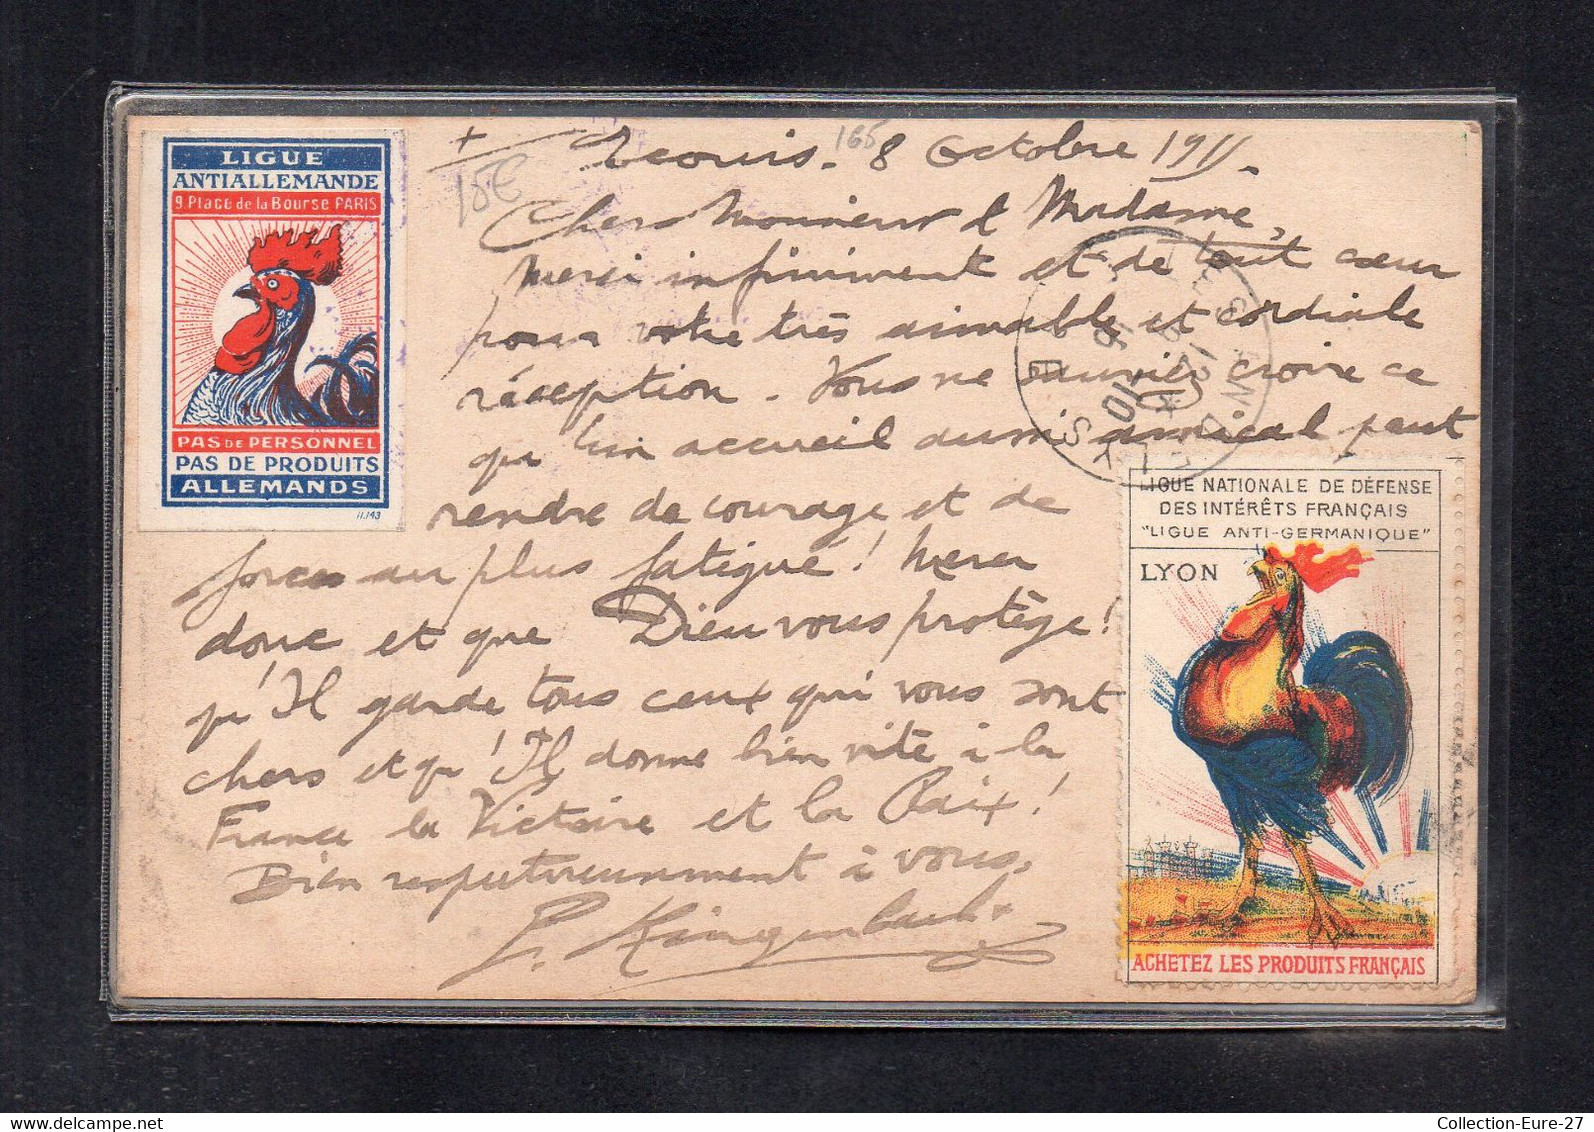 LIGUE
ANTIALLEMANDE
9 Place de la Bourse PARIS
PAS DE PERSONNEL
PAS DE PRODUITS
ALLEMANDS
11.143
165
15€
Ecouis. 8 Octobre 191
Chers Monsieur & Madame,
Merci infiniment et de tout cœur
pour votre très aimable et cordiale
réception. Vous ne sauriez croire ce
qu'un accueil aussi amical peut
rendre de courage et de
forces au plus fatigué! Merci
donc et que Dieu vous protège!
qu'Il garde tous ceux qui vous sont
chers et qu'Il donne bien vite à la
France la Victoire et la Paix!
Bien respectueusement à vous.
LES ANDELYS
LIGUE NATIONALE DE DÉFENSE
DES INTÉRÊTS FRANÇAIS
"LIGUE ANTI-GERMANIQUE"
LYON
ACHETEZ LES PRODUITS FRANÇAIS
Collection-Eure-27